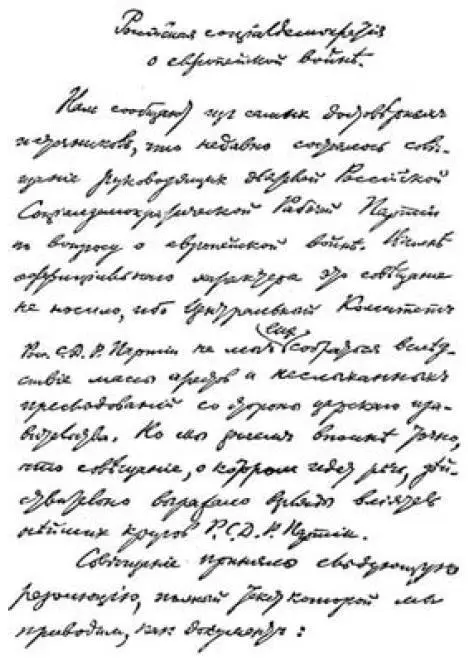 Российская социалдемократия
о европейской войнѣ.
Нам сообщают из самых достоверных
источников, что недавно состоялось сове-
щание руководящих деятелей Российской
Социалдемократической Рабочей Партии
по вопросу о европейской войнѣ. Вполнѣ
оффициального характера это совѣщание
не носило, ибо Центральный Комитетъ
Рос. С.Д.Р. Партии не мог еще собраться вслѣд-
ствіе массы арестов и неслыханных
преслѣдований со стороны царскаго пра-
вительства. Но мы знаем вполнѣ точно,
что совѣщаніе, о котором идет рѣчь, дѣй-
ствительно выражало взгляды вліятель-
нѣйших кругов Р.С.Д.Р. Партіи.
Совѣщаніе приняло слѣдующую
резолюцію, полный текст которой мы
приводим, как документъ: